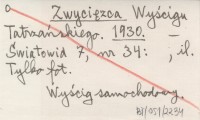 Zwycięzca Wyścigu
Tatrzańskiego. 1930. –
Światowid 7, nr 34: , il.
Tylko fot.
Wyścig samochodowy.
BJ/051/2234